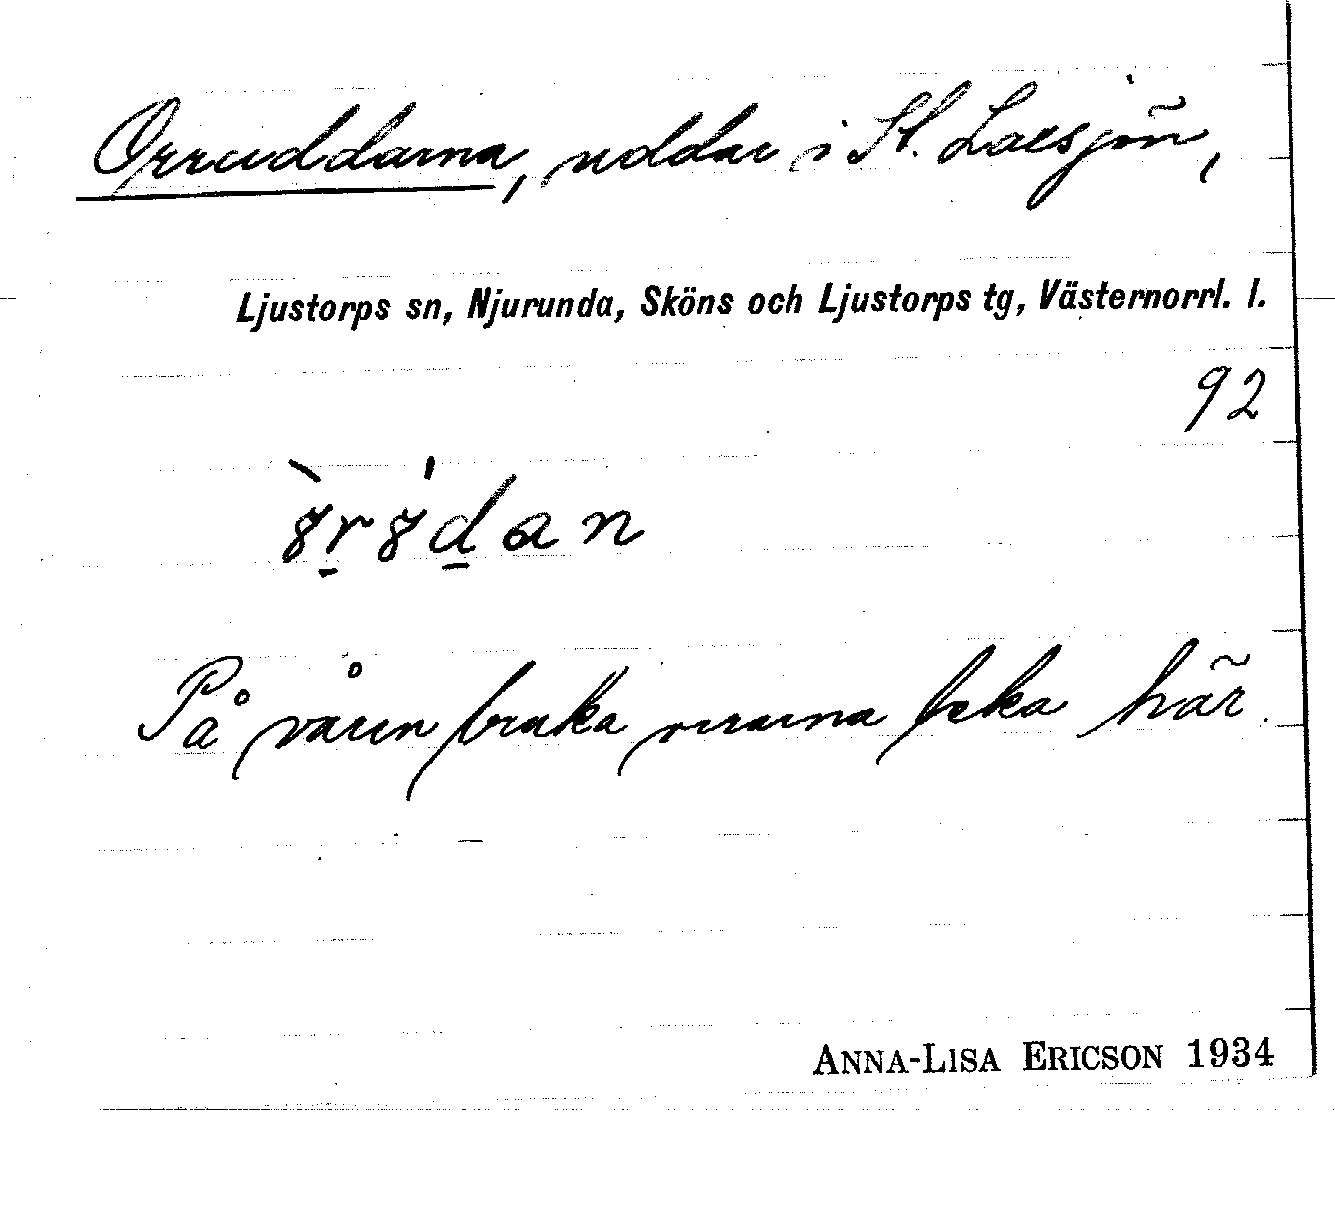 Orruddarna, uddar i St. Laxsjön,
Ljustorps sn, Njurunda, Sköns och Ljustorps tg, Västernorrl. l.
92
På våren bruka orrarna leka här.
ANNA-LISA ERICSON 1934